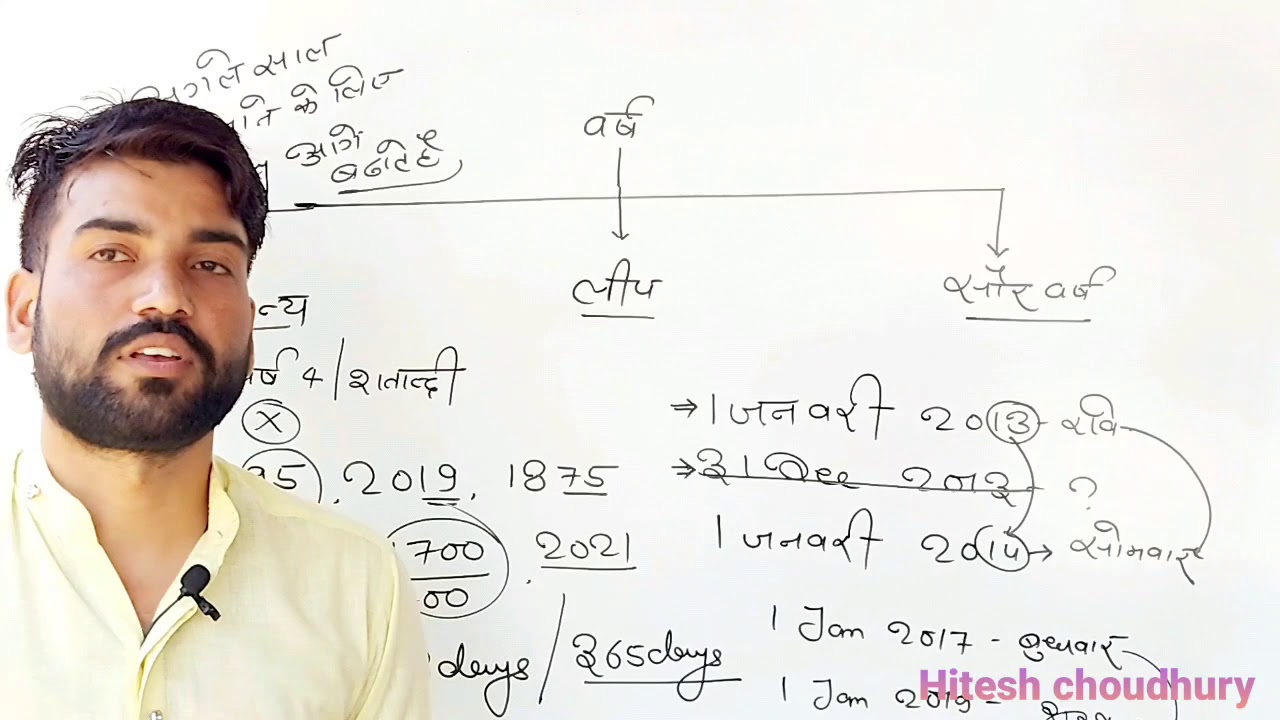 अगले साल
के लिए
आगे
बढाते है
वर्ष
न्य
लीप
सौर वर्ष
र्ष 4 / शताब्दी
X
95, 2019, 1875
1700, 2021
00
days / 365days
⇒ 1 जनवरी 2013 - रवि
⇒ 31 Dec 2013 - ?
1 जनवरी 2014 → सोमवार
1 Jan 2017 - बुधवार
1 Jan 2019 -
Hitesh choudhury